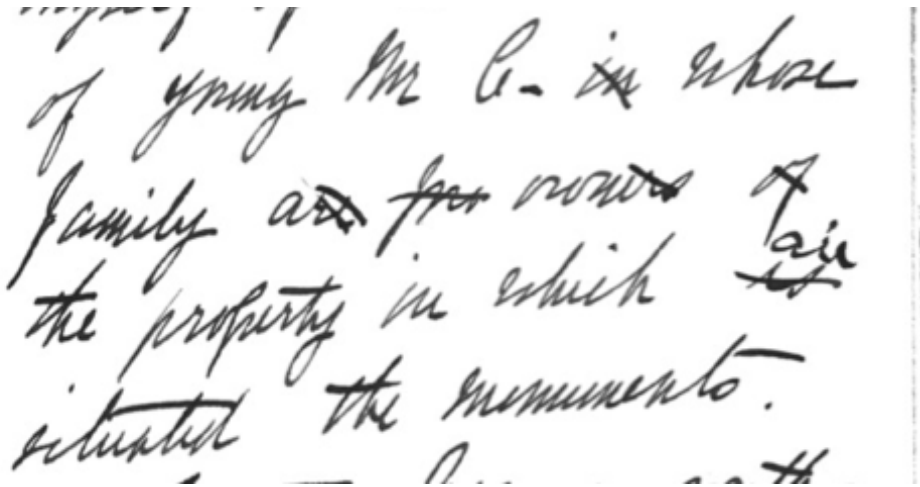 myself of
of young Mr C. in whose
family are pro owners of
the property in which is are
situated the monuments.